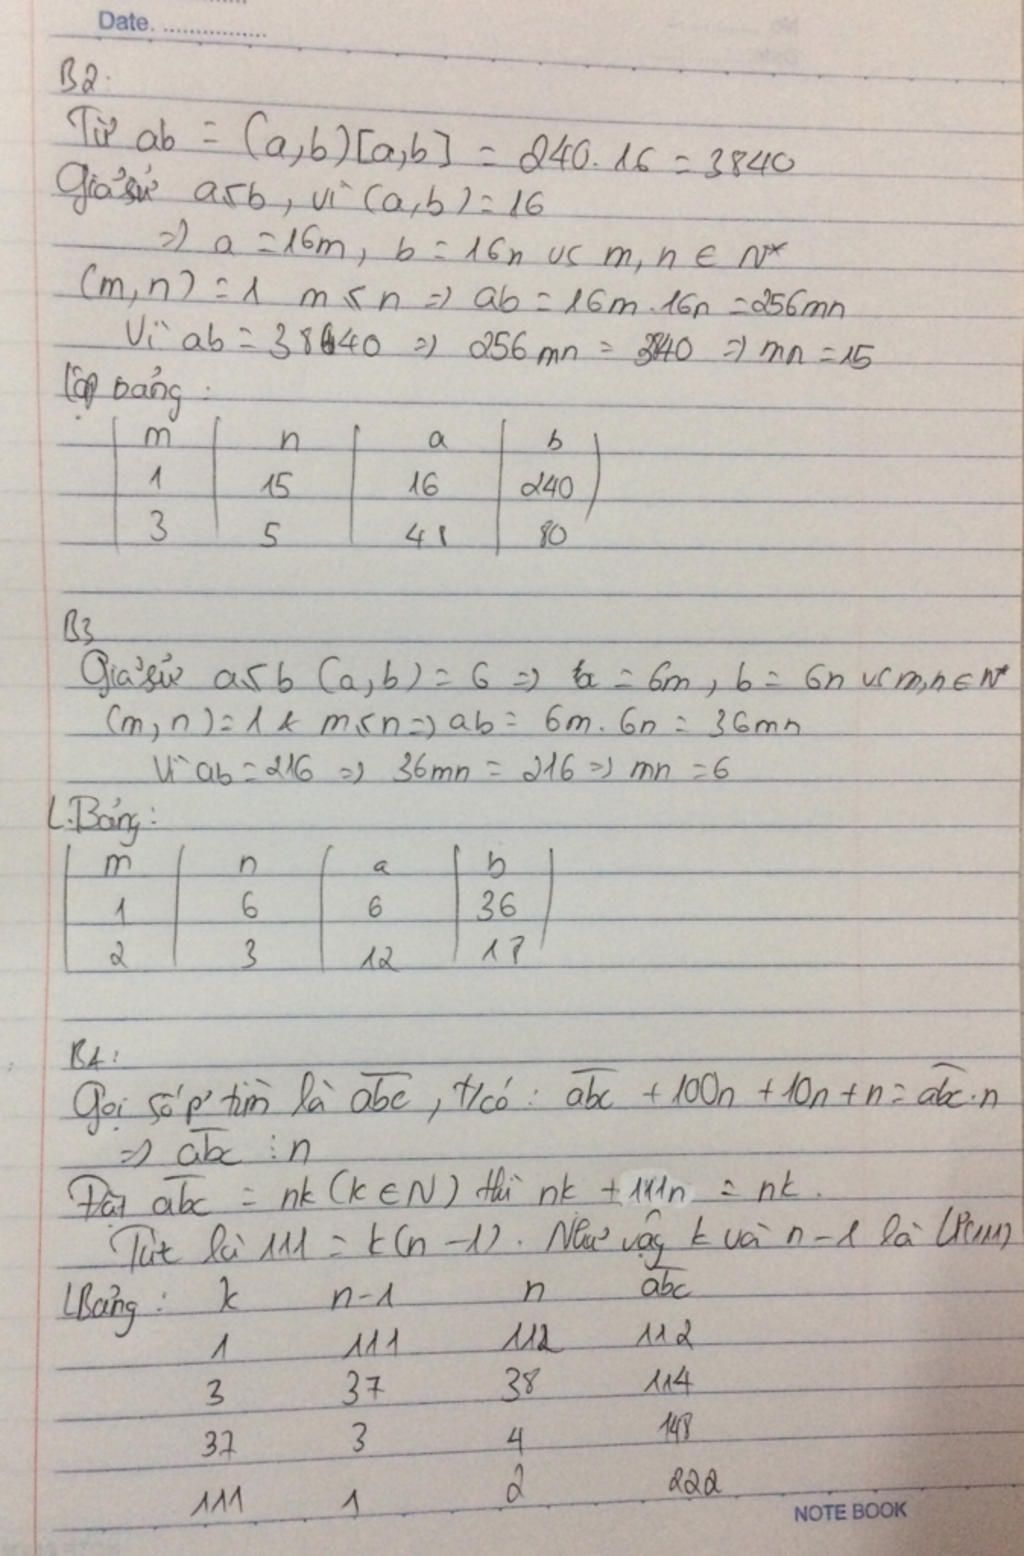 Date. ................
B2:
Từ ab = (a,b)[a,b] = 240.16 = 3840
Giả sử a≤b, vì (a,b)=16
=> a =16m, b = 16n vs m, n ∈ N*
(m,n) = 1 m≤n => ab = 16m.16n =256mn
Vì ab = 3840 => 256mn = 3840 => mn =15
Lập bảng:
m n a b
1 15 16 240
3 5 48 80
B3
Giả sử a≤b (a,b) = 6 => a = 6m, b = 6n vs m,n ∈ N*
(m,n)=1 & m≤n => ab = 6m.6n = 36mn
Vì ab=216 => 36mn = 216 => mn =6
L.Bảng:
m n a b
1 6 6 36
2 3 12 18
B4:
Gọi số p' tìm là abc, t/có: abc + 100n + 10n + n = abc.n
=> abc ⋮ n
Đặt abc = nk (k ∈ N) thì nk + 111n = nk.
Tức là 111 = k(n -1). Như vậy k và n-1 là Ư(111)
LBảng: k n-1 n abc
1 111 112 112
3 37 38 114
37 3 4 148
111 1 2 222
NOTE BOOK